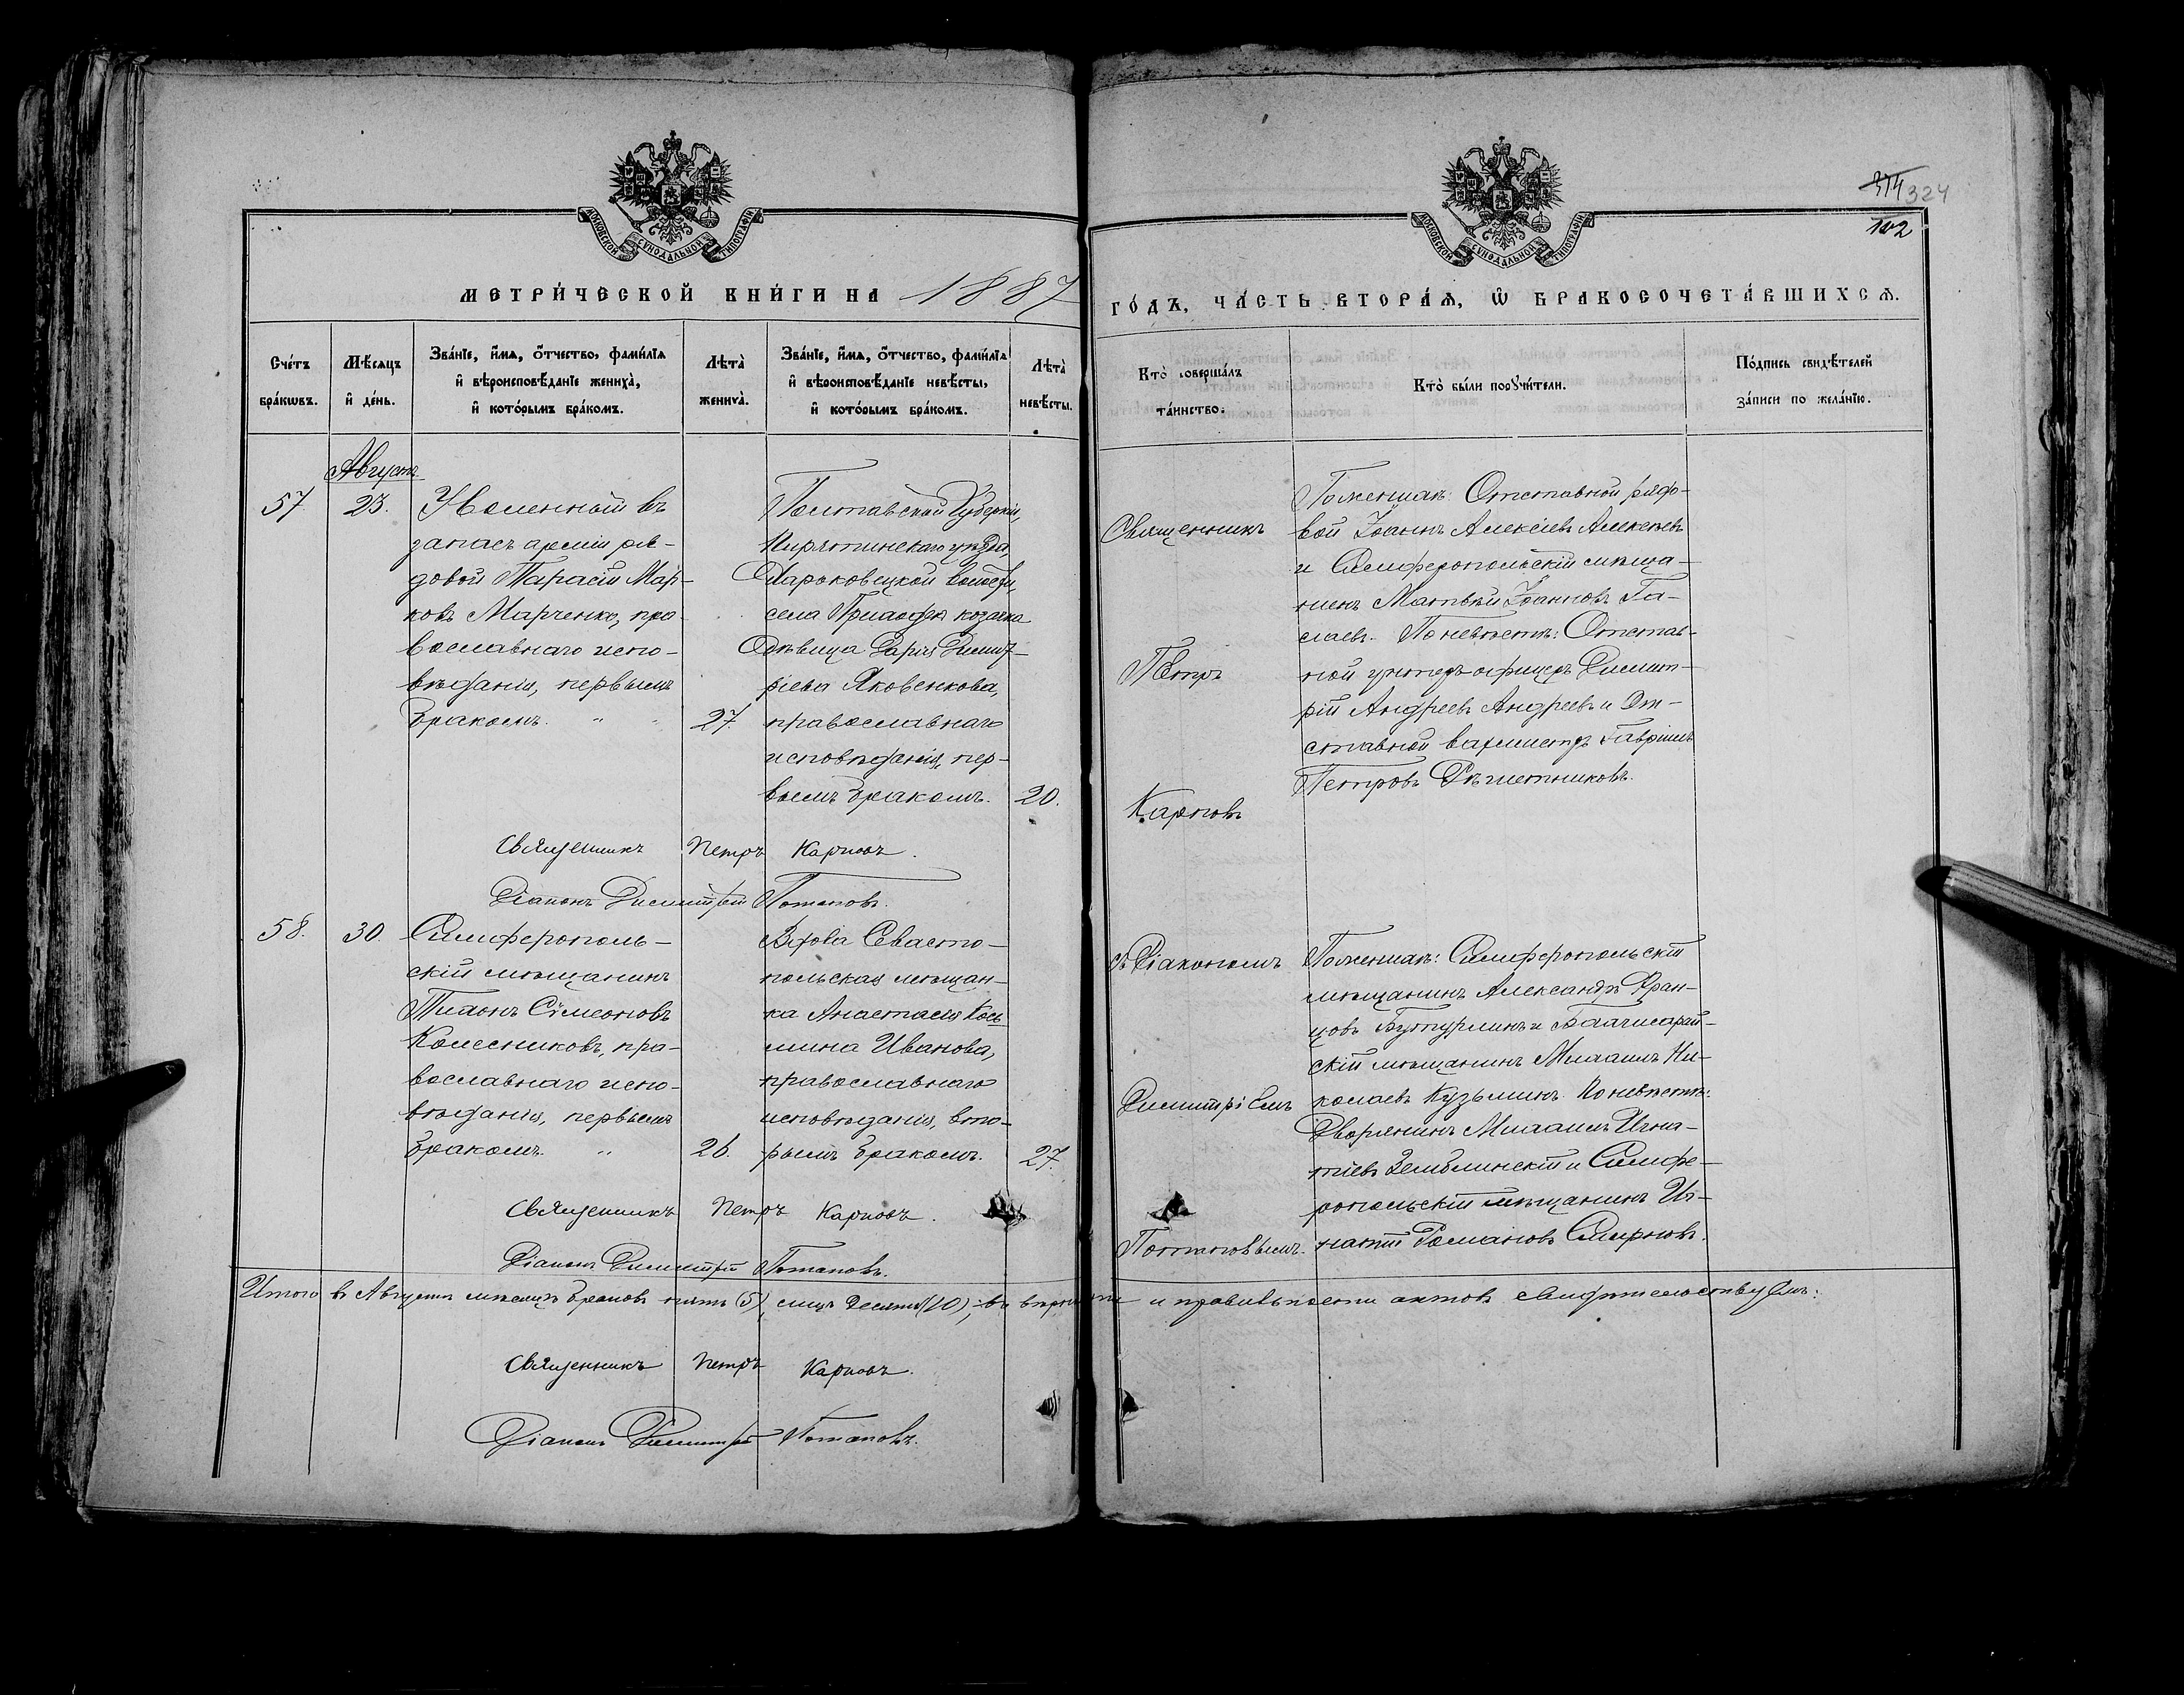 МОСКОВСКОЙ СУНОДАЛЬНОЙ ТИПОГРАФІИ
МОСКОВСКОЙ СУНОДАЛЬНОЙ ТИПОГРАФІИ
374 324
102
МЕТРИ́ЧЕСКОЙ КНИ́ГИ НА 1887
ГО́ДЪ, ЧА́СТЬ ВТОРА́Ѧ, Ѿ БРАКОСОЧЕТА́ВШИХСѦ.
Сче́тъ
бра́кѡвъ.
Мѣ́сяцъ
и҆ де́нь.
Зва́нїе, и҆́мѧ, ѻ҆́тчество, фами́лїѧ
и҆ вѣроисповѣ́данїе жениха̀,
и҆ кото́рымъ бра́комъ.
Лѣта̀
жениха̀.
Зва́нїе, и҆́мѧ, ѻ҆́тчество, фами́лїѧ
и҆ вѣроисповѣ́данїе невѣ́сты,
и҆ кото́рымъ бра́комъ.
Лѣта̀
невѣ́сты.
Кто̀ соверша́лъ
та́инство.
Кто̀ бы́ли порꙋчи́тели.
По́дпись свидѣ́телей
за́писи по жела́нїю.
Августъ
57
23.
Уволенный въ
запасъ арміи ря-
довой Тарасій Мар-
ковъ Марченко, пра-
вославнаго испо-
вѣданія, первымъ
бракомъ.
27.
Полтавской Губерніи,
Пирятинскаго уѣзда,
волости,
села козачка
дѣвица Дарія Димит-
ріева Яковенкова,
православнаго
исповѣданія, пер-
вымъ бракомъ.
20.
Священникъ
Петръ
Карповъ
По женихѣ: Отставной рядо-
вой Іоаннъ Алексіевъ Алексѣевъ
и Симферопольскій мѣща-
нинъ Матвѣй Іоанновъ Га-
лаевъ. По невѣстѣ: Отстав-
ной унтеръ-офицеръ Димит-
рій Андреевъ Андреевъ и От-
ставной вахмистръ Гавріилъ
Петровъ Рѣшетниковъ.
Священникъ Петръ Карповъ.
Діаконъ Димитрій Потаповъ.
58.
30.
Симферополь-
скій мѣщанинъ
Тихонъ Сѵмеоновъ
Колесниковъ, пра-
вославнаго испо-
вѣданія, первымъ
бракомъ.
26.
Вдова Севасто-
польская мѣщан-
ка Анастасія Козь-
мина Иванова,
православнаго
исповѣданія, вто-
рымъ бракомъ.
27.
съ Діакономъ
Димитріемъ
Потаповымъ.
По женихѣ: Симферопольскій
мѣщанинъ Александръ Фран-
цовъ Бутурлинъ и Бахчисарай-
скій мѣщанинъ Михаилъ Ни-
колаевъ Кузьминъ. По невѣстѣ:
Дворянинъ Михаилъ Игна-
тіевъ Зембинскій и Симфе-
ропольскій мѣщанинъ Иг-
натій Романовъ Смирновъ.
Священникъ Петръ Карповъ.
Діаконъ Димитрій Потаповъ.
Итого въ Августѣ мѣсяцѣ браковъ пять (5), лицъ десять (10); въ вѣрности и правильности актовъ свидѣтельствуемъ:
Священникъ Петръ Карповъ.
Діаконъ Димитрій Потаповъ.